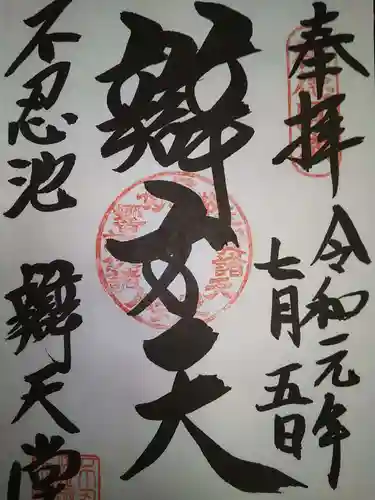 奉拝
令和元年
七月五日
辯才天
不忍池
辯天堂